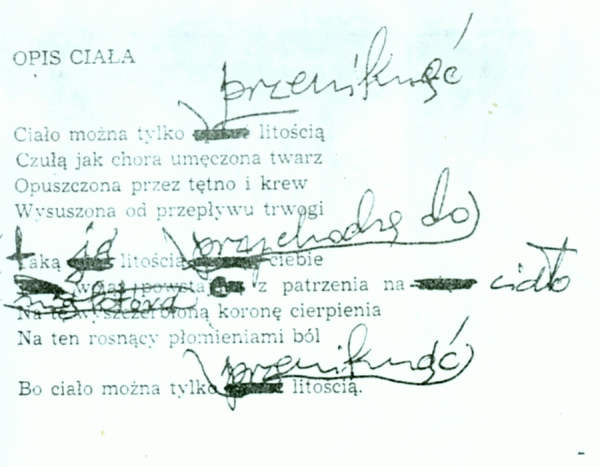 OPIS CIAŁA
przeniknąć
Ciało można tylko litością
Czułą jak chora umęczona twarz
Opuszczona przez tętno i krew
Wysuszona od przepływu trwogi
ja przychodzę do
Taką litością ciebie
z patrzenia na ciało
Na tę wyszczerbioną koronę cierpienia
Na ten rosnący płomieniami ból
przeniknąć
Bo ciało można tylko litością.